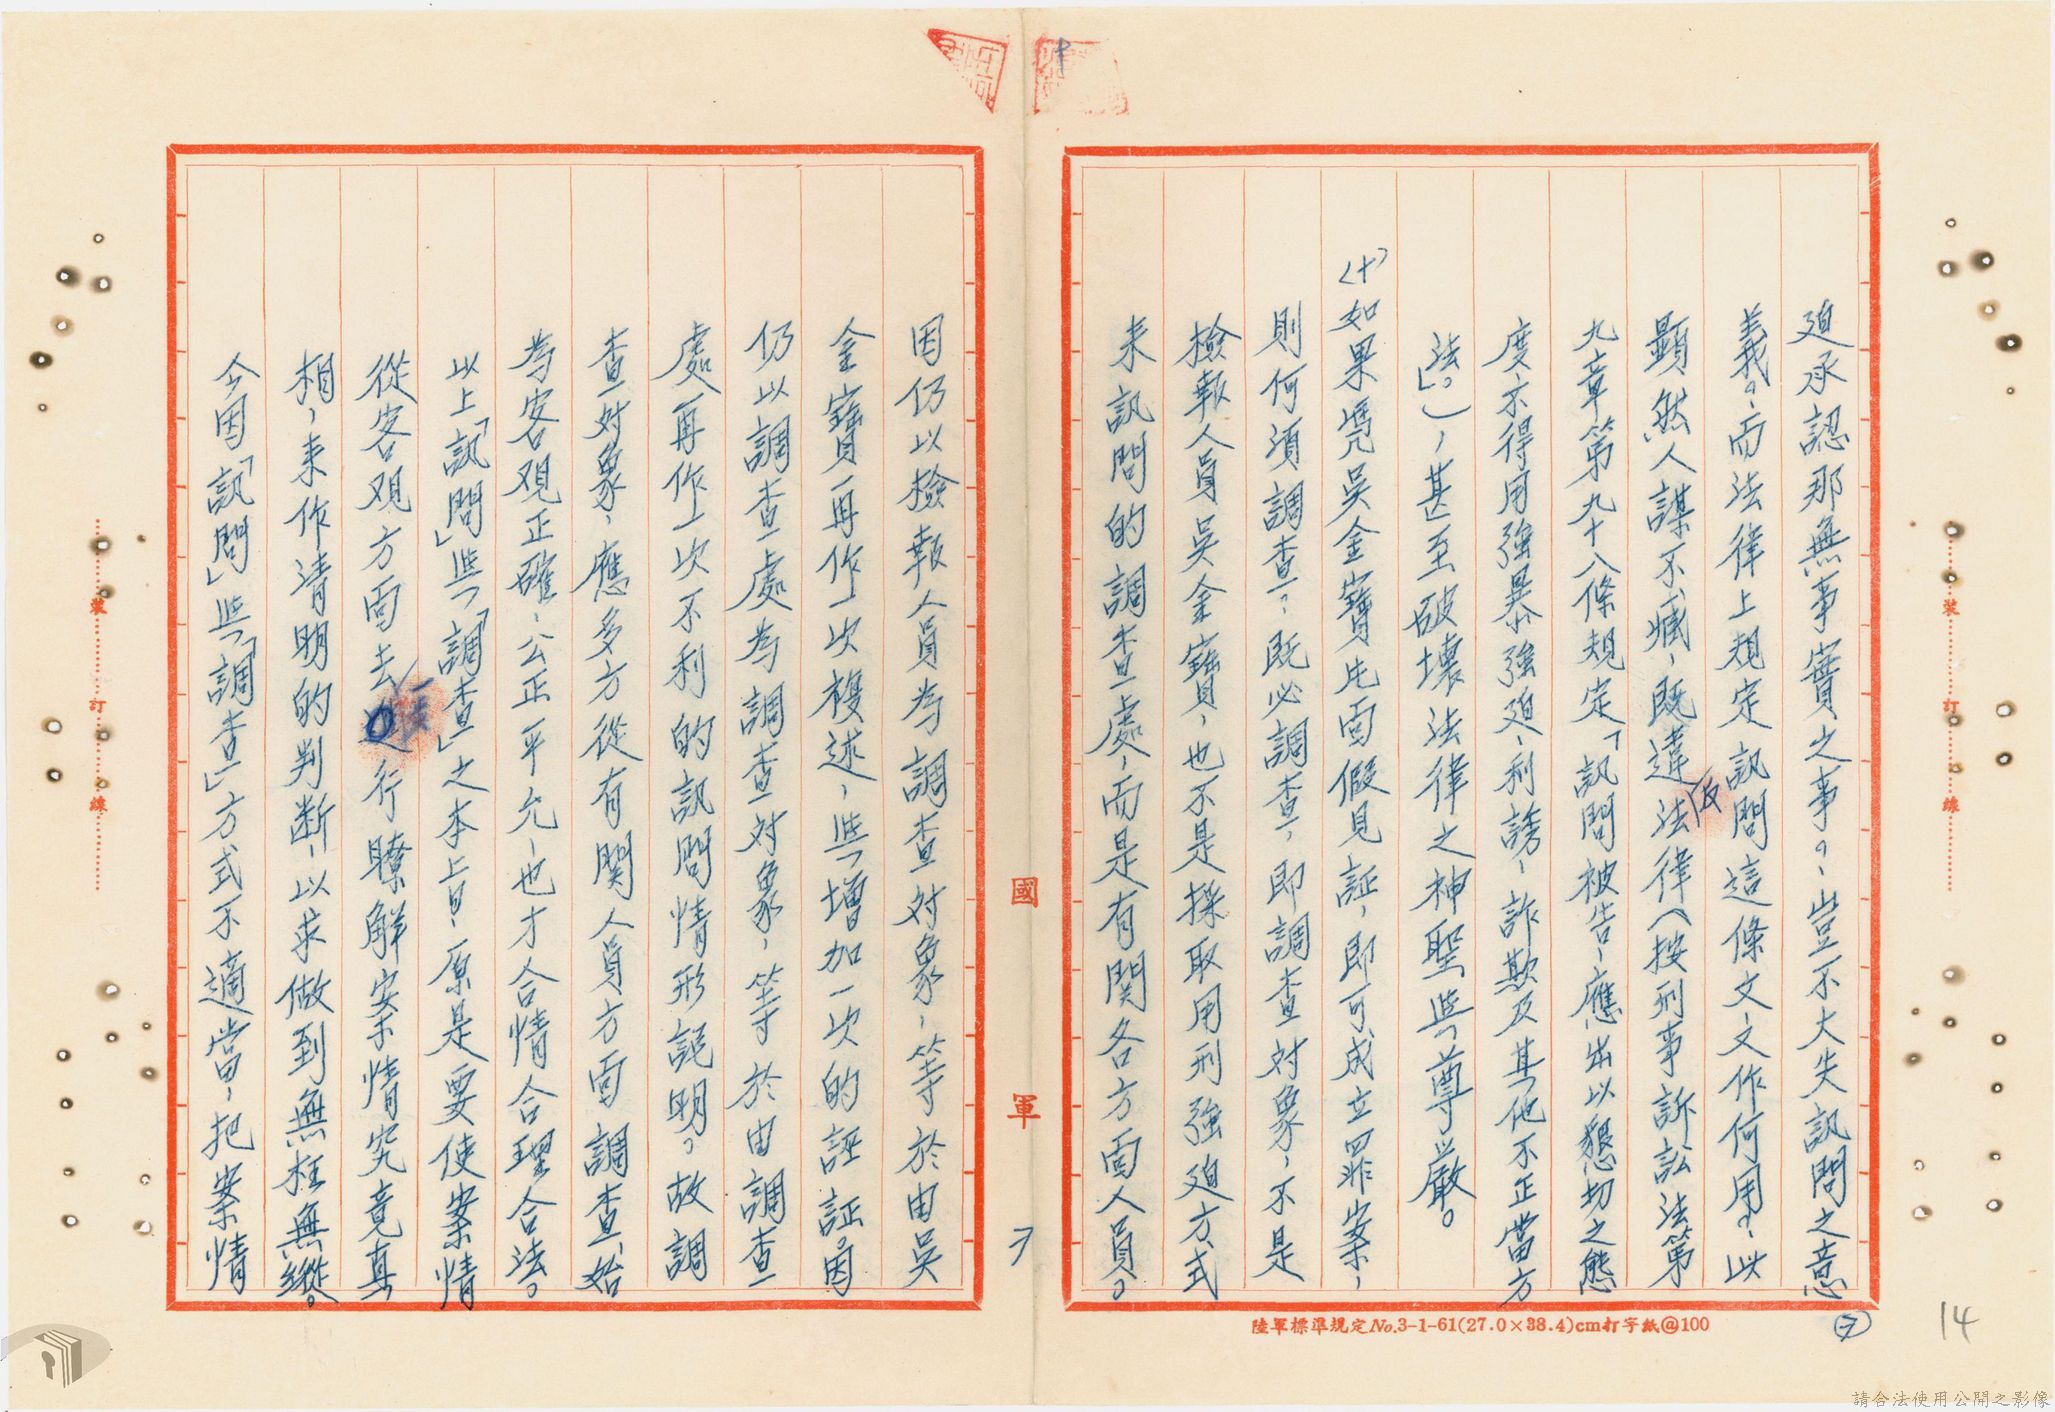 迫承認那無事實之事。，豈不大失訊問之意
義。，而法律上規定訊問這條文，又作何用。，此
顯然人謀不臧，既違反法律（按刑事訴訟法第
九章第九十八條規定「訊問被告，應出以懇切之態
度，不得用強暴、強迫、利誘、詐欺及其他不正當方
法。」），甚至破壞法律之神聖與尊嚴。
(十)如果憑吳金寶片面假見証，即可成立罪案，
則何須調查。，既必調查，即調查對象，不是
檢報人員吳金寶，也不是採取用刑強迫方式
來訊問的調查處，而是有関各方面人員。
因仍以檢報人員為調查对象，等於由吳
金寶再作一次複述，與增加一次的誣証。因
仍以調查處為調查对象，等於由調查
處再作一次不利的訊問情形説明。故調
查对象，應多方從有関人員方面調查，始
為客观正確，公正平允，也才合情合理合法。
以上「訊問」與「調查」之本旨，原是要使案情
從客观方面去行瞭解案情究竟真
相，來作清明的判断，以求做到無枉無縱。
今因「訊問」與「調查」方式不適當，把案情
國軍
7
裝 訂 線
裝 訂 線
陸軍標準規定No.3-1-61(27.0×38.4)cm打字紙@100
⑦
14
請合法使用公開之影像